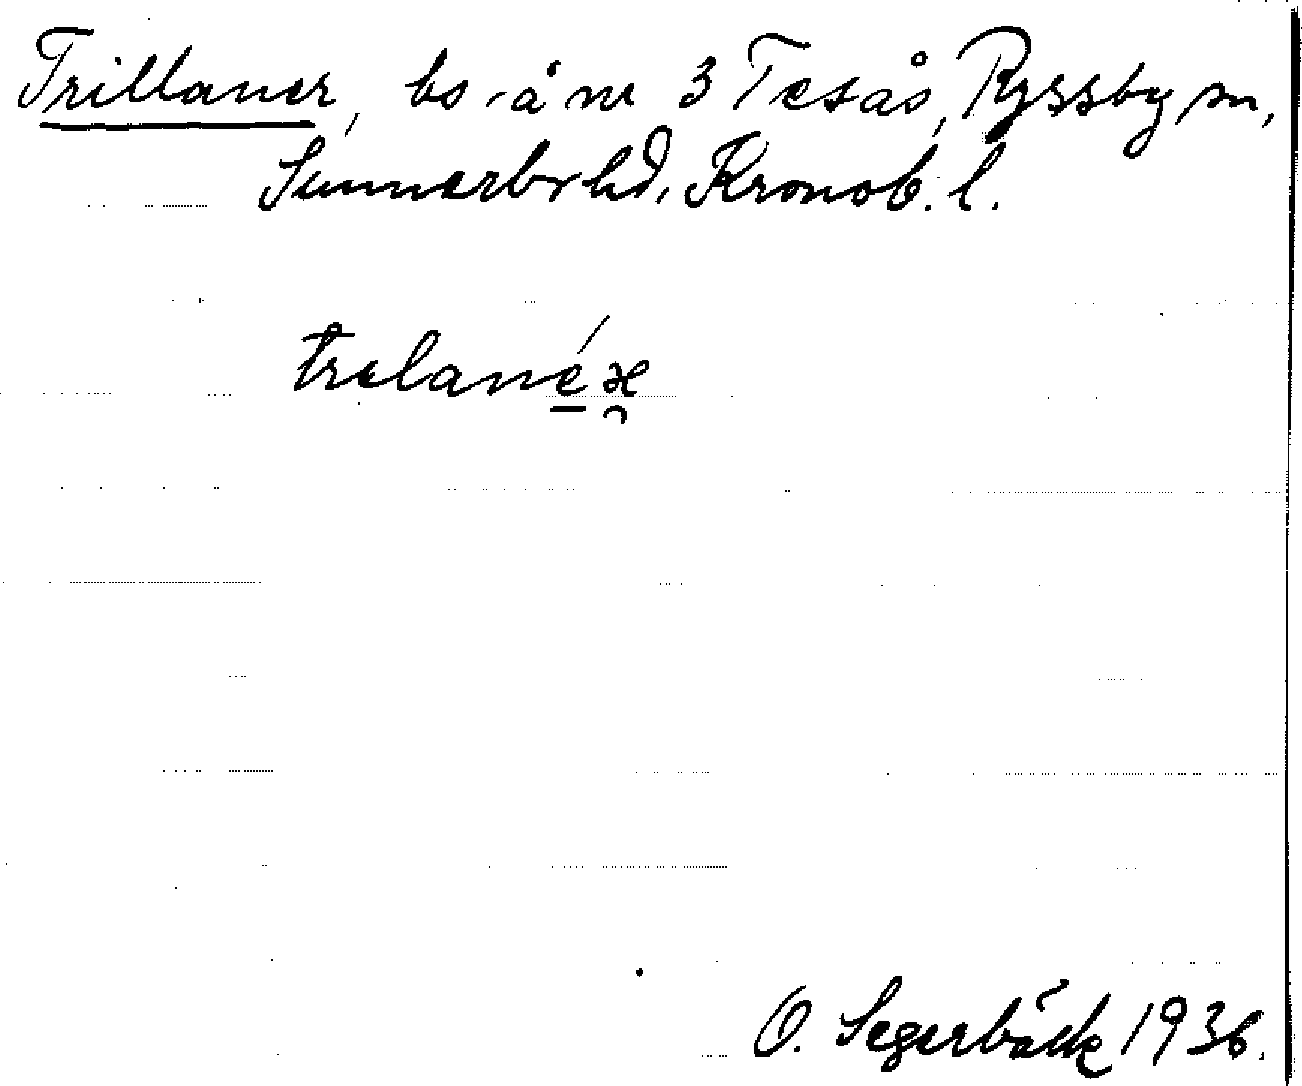 Trillaner, bs. å nr 3 Tesås, Ryssby sn,
Sunnerbo hd, Kronob. l.
trelanéæ
O. Segerbäck 1936.